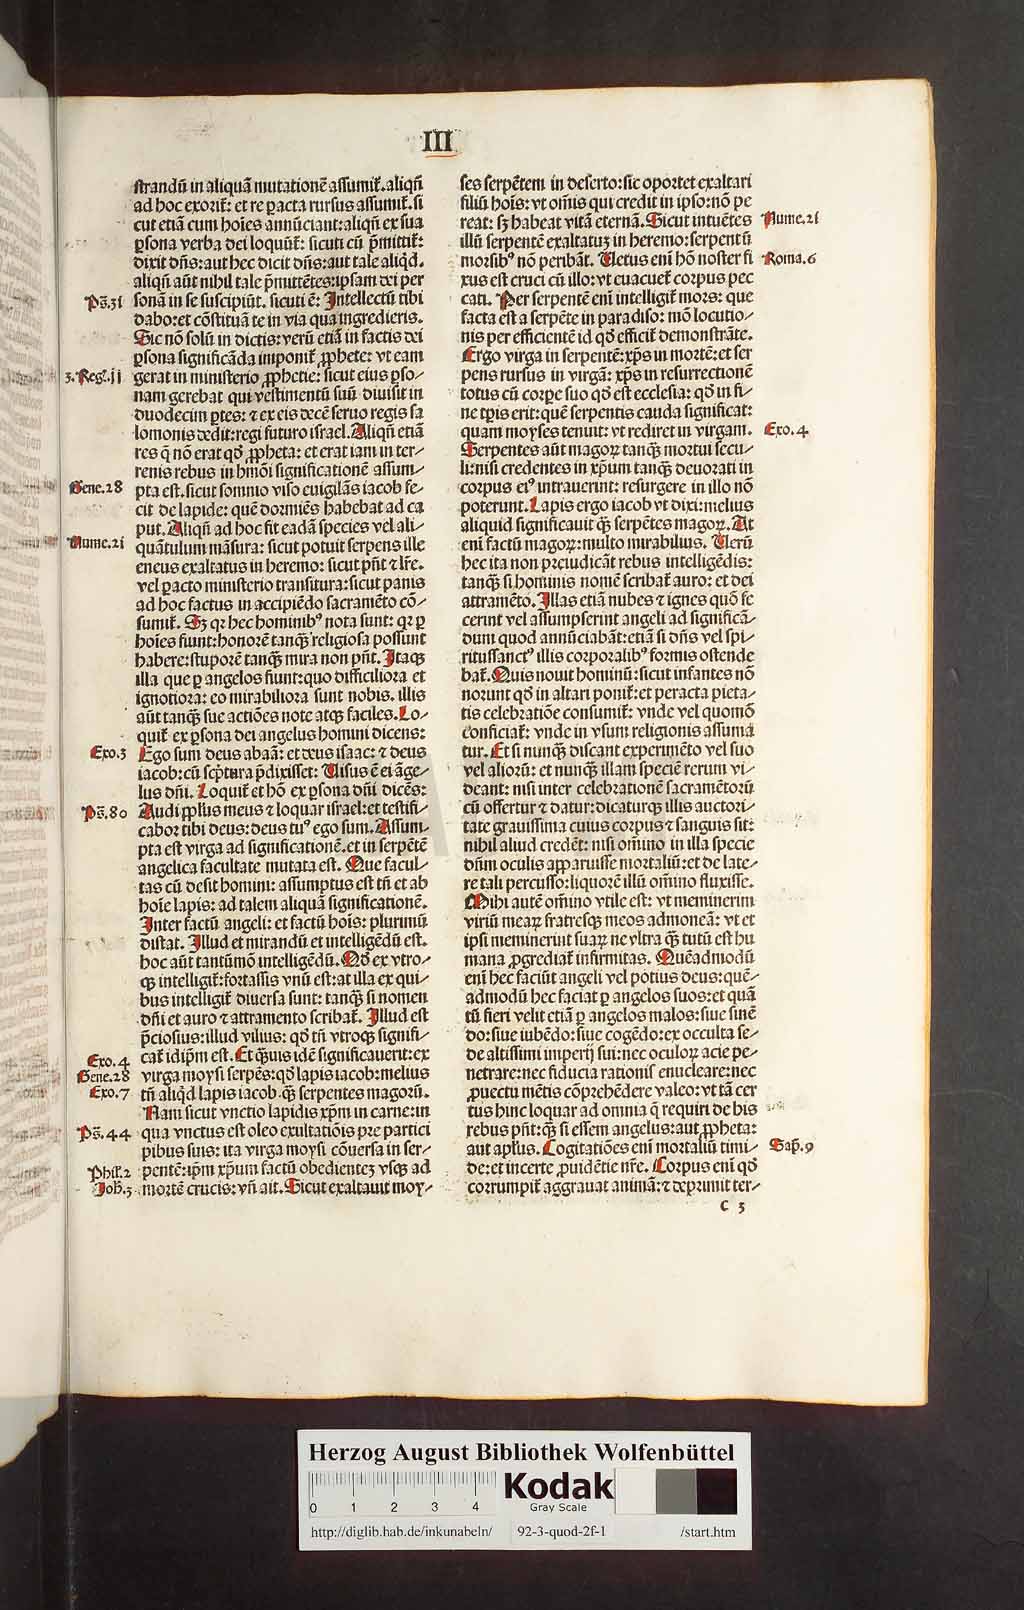 III
strandū in aliquā mutationē assumit̄. aliqn̄
ad hoc exorit̄: et re ꝑacta rursus assumit̄. si
cut etiā cum hoīes annūciant: aliqn̄ ex sua
ꝑsona verba dei loquūt̄: sicuti cū p̄mittit̄:
dixit dn̄s: aut hec dicit dn̄s: aut tale aliqd.
aliqn̄ aūt nihil tale p̄mittētes: ipsam dei per
Ps̄.31 sonā in se suscipiūt. sicuti ē: Intellectū tibi
dabo: et cōstituā te in via qua ingredieris.
Sic nō solū in dictis: verū etiā in factis dei
ꝑsona significāda imponit̄ ꝓphete: vt eam
3. Reg̃.11 gerat in ministerio ꝓphetie: sicut eius ꝑso-
nam gerebat qui vestimentū suū diuisit in
duodecim ꝑtes: ⁊ ex eis decē seruo regis sa
lomonis dedit: regi futuro israel. Aliqn̄ etiā
res q̄ nō erat qd̄ ꝓpheta: et erat iam in ter-
renis rebus in hmōi significationē assum-
Gene.28 pta est. sicut somnio viso euigilās iacob fe-
cit de lapide: quē dormiēs habebat ad ca
put. Aliqn̄ ad hoc fit eadā species vel ali-
Nume.21 quātulum māsura: sicut potuit serpens ille
eneus exaltatus in heremo: sicut pn̄t ⁊ lr̄e.
vel ꝑacto ministerio transitura: sicut panis
ad hoc factus in accipiēdo sacramēto cō-
sumit̄. Sꝫ qr hec hominibꝰ nota sunt: qr ꝑ
hoīes fiunt: honorē tanqꝫ religiosa possunt
habere: stuporē tanqꝫ mira non pn̄t. Itaqꝫ
illa que ꝑ angelos fiunt: quo difficiliora et
ignotiora: eo mirabiliora sunt nobis. illis
aūt tanqꝫ sue actiōes note atqꝫ faciles. Lo-
quit̄ ex ꝑsona dei angelus homini dicens:
Exo.3 Ego sum deus abaā: et deus isaac: ⁊ deus
iacob: cū scp̄tura p̄dixisset: Visus ē ei āge-
lus dn̄i. Loquit̄ et hō ex ꝑsona dn̄i dicēs:
Ps̄.80 Audi pp̄lus meus ⁊ loquar israel: et testifi-
cabor tibi deus: deus tuꝰ ego sum. Assum-
pta est virga ad significationē. et in serpētē
angelica facultate mutata est. Que facul-
tas cū desit homini: assumptus est tn̄ et ab
hoīe lapis: ad talem aliquā significationē.
Inter factū angeli: et factū hoīs: plurimū
distat. Illud et mirandū et intelligēdū est.
hoc aūt tantūmō intelligēdū. Qd̄ ex vtro-
qꝫ intelligit̄: fortassis vnū est: at illa ex qui-
bus intelligit̄ diuersa sunt: tanqꝫ si nomen
dn̄i et auro ⁊ attramento scribat̄. Illud est
p̄ciosius: illud vilius: qd̄ tn̄ vtroqꝫ signifi-
Exo.4 cat̄ idip̄m est. Et qꝫuis idē significauerit: ex
Gene.28 virga moysi serpēs: qd̄ lapis iacob: melius
Exo.7 tn̄ aliqd lapis iacob. qꝫ serpentes magorū.
Nam sicut vnctio lapidis xp̄m in carne: in
Ps̄.44 qua vnctus est oleo exultatiōis pre partici
pibus suis: ita virga moysi cōuersa in ser-
Phil̄.2 pentē: ip̄m xp̄um factū obedienteꝫ vsqꝫ ad
Joh̄.3 mortē crucis: vn̄ ait. Sicut exaltauit moy-
ses serpētem in deserto: sic oportet exaltari
filiū hoīs: vt om̄is qui credit in ipso: nō pe
reat: sꝫ habeat vitā eternā. Sicut intuētes Nume.21
illū serpentē exaltatuꝫ in heremo: serpentū
morsibꝰ nō peribāt. Vetus enī hō noster fi Roma.6
xus est cruci cū illo: vt euacuet̄ corpus pec
cati. Per serpentē enī intelligit̄ mors: que
facta est a serpēte in paradiso: mō locutio-
nis per efficientē id qd̄ efficit̄ demonstrāte.
Ergo virga in serpentē: xp̄s in mortē: et ser
pens rursus in virgā: xp̄s in resurrectionē
totus cū corpe suo qd̄ est ecclesia: qd̄ in fi-
ne tp̄is erit: quē serpentis cauda significat:
quam moyses tenuit: vt rediret in virgam. Exo.4
Serpentes aūt magoꝝ tanqꝫ mortui secu-
li: nisi credentes in xp̄um tanqꝫ deuorati in
corpus eiꝰ intrauerint: resurgere in illo nō
poterunt. Lapis ergo iacob vt dixi: melius
aliquid significauit qꝫ serpētes magoꝝ. At
enī factū magoꝝ: multo mirabilius. Verū
hec ita non preiudicāt rebus intelligēdis:
tanqꝫ si hominis nomē scribat̄ auro: et dei
attramēto. Illas etiā nubes ⁊ ignes quō fe
cerint vel assumpserint angeli ad significā-
dum quod annūciabāt: etiā si dn̄s vel spi-
ritussanctꝰ illis corporalibꝰ formis ostende
bat̄. Quis nouit hominū: sicut infantes nō
norunt qd̄ in altari ponit̄: et peracta pieta-
tis celebratiōe consumit̄: vnde vel quomō
conficiat̄: vnde in vsum religionis assuma
tur. Et si nunqꝫ discant experimēto vel suo
vel aliorū: et nunqꝫ illam speciē rerum vi-
deant: nisi inter celebrationē sacramētorū
cū offertur ⁊ datur: dicaturqꝫ illis auctori-
tate grauissima cuius corpus ⁊ sanguis sit:
nihil aliud credēt: nisi om̄ino in illa specie
dn̄m oculis apparuisse mortaliū: et de late-
re tali percusso: liquorē illū om̄ino fluxisse.
Mihi autē om̄ino vtile est: vt meminerim
viriū meaꝝ fratresqꝫ meos admoneā: vt et
ipsi meminerint suaꝝ ne vltra qꝫ tutū est hu
mana ꝓgrediat̄ infirmitas. Quēadmodū
enī hec faciūt angeli vel potius deus: quē-
admodū hec faciat ꝑ angelos suos: et quā
tū fieri velit etiā ꝑ angelos malos: siue sinē
do: siue iubēdo: siue cogēdo: ex occulta se-
de altissimi imperij sui: nec oculoꝝ acie pe-
netrare: nec fiducia rationis enucleare: nec
ꝓuectu mētis cōprehēdere valeo: vt tā cer
tus hinc loquar ad omnia q̄ requiri de his
rebus pn̄t: qꝫ si essem angelus: aut ꝓpheta:
aut apl̄us. Cogitatiōes enī mortaliū timi- Sap̄.9
de: et incerte ꝓuidētie nr̄e. Corpus enī qd̄
corrumpit̄ aggrauat animā: ⁊ deprimit ter-
c 3
Herzog August Bibliothek Wolfenbüttel
0 1 2 3 4
Kodak
Gray Scale
http://diglib.hab.de/inkunabeln/ 92-3-quod-2f-1 /start.htm